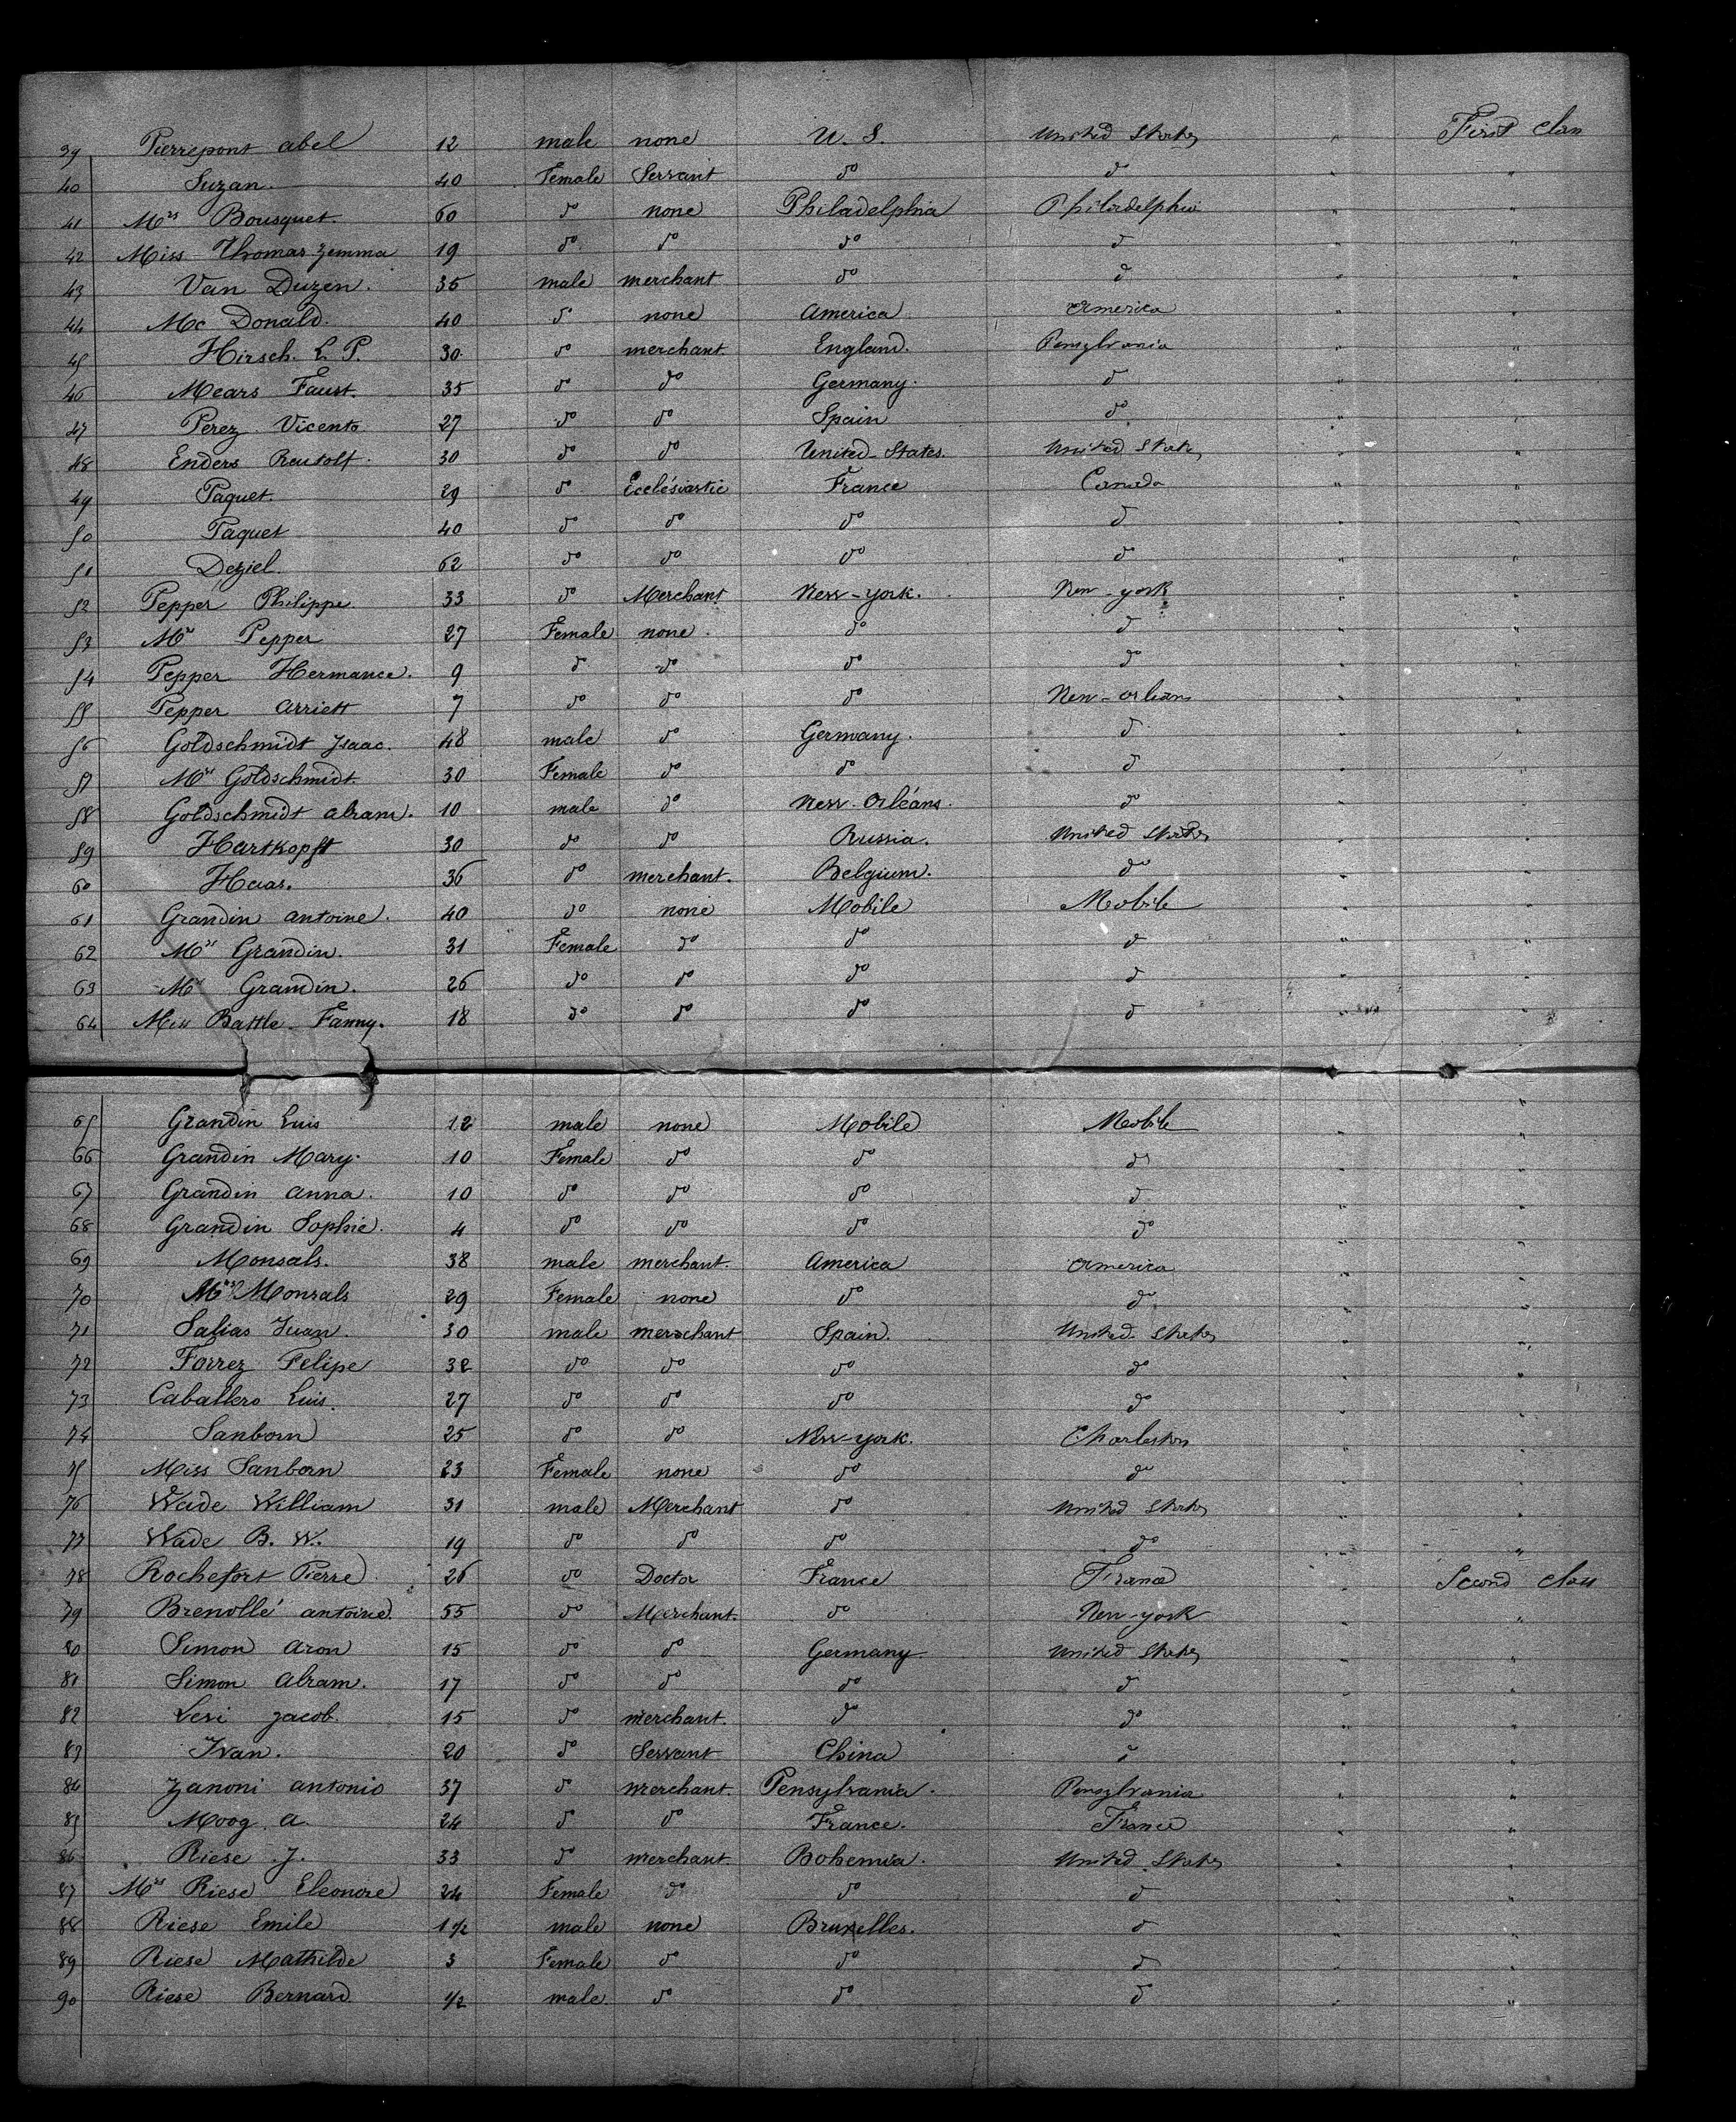 39 Pierrepont abel 12 male none U. S. United States " First class
40 Suzan. 40 Female Servant do do " "
41 Mrs Bousquet. 60 do none Philadelphia Philadelphia " "
42 Miss Thomas Zemma 19 do do do do " "
43 Van Duzen. 35 male merchant do do " "
44 Mc Donald. 40 do none America America " "
45 Hirsch. L P. 30 do merchant. England. Pensylvania " "
46 Mears Faust. 35 do do Germany. do " "
47 Perez Vicente 27 do do Spain do " "
48 Enders Reutolf. 30 do do United-States. United States " "
49 Paquet. 29 do Ecclésiastic France Canada " "
50 Paquet 40 do do do do " "
51 Deziel. 62 do do do do " "
52 Pepper Philippe 33 do Merchant New-york. New-york " "
53 Mrs Pepper 27 Female none. do do " "
54 Pepper Hermance. 9 do do do do " "
55 Pepper arriett 7 do do do New-orleans " "
56 Goldschmidt Isaac. 48 male do Germany. do " "
57 Mrs Goldschmidt. 30 Female do do do " "
58 Goldschmidt abram. 10 male do New-Orléans. do " "
59 Hartkopft 30 do do Russia. United States " "
60 Haas. 36 do merchant. Belgium. do " "
61 Grandin antoine. 40 do none Mobile Mobile " "
62 Mrs Grandin. 31 Female do do do " "
63 Mrs Grandin. 26 do do do do " "
64 Miss Battle Fanny. 18 do do do do " "
65 Grandin Luis 12 male none Mobile Mobile " "
66 Grandin Mary. 10 Female do do do " "
67 Grandin anna. 10 do do do do " "
68 Grandin Sophie. 4 do do do do " "
69 Monsals. 38 male merchant. America America " "
70 Mrs Monsals 29 Female none do do " "
71 Salias Juan. 30 male merchant Spain. United States " "
72 Forrez Felipe 32 do do do do " "
73 Caballero Luis. 27 do do do do " "
74 Sanborn 25 do do New-york. Charleston " "
75 Miss Sanborn 23 Female none do do " "
76 Wade William 31 male Merchant do United States " "
77 Wade B. W. 19 do do do do " "
78 Rochefort Pierre 26 do Doctor France France " Second class
79 Brenollé antoine 55 do Merchant. do New-york " "
80 Simon aron 15 do do Germany United States " "
81 Simon abram. 17 do do do do " "
82 Levi jacob. 15 do merchant. do do " "
83 Ivan. 20 do Servant China do " "
84 Zanoni antonio 37 do merchant. Pensylvania. Pensylvania " "
85 Moog a. 24 do do France. France " "
86 Riese J. 33 do merchant. Bohemia. United States " "
87 Mrs Riese Eleonore 24 Female do do do " "
88 Riese Emile 1 1/2 male none Bruxelles. do " "
89 Riese Mathilde 3 Female do do do " "
90 Riese Bernard 1/2 male. do do do " "